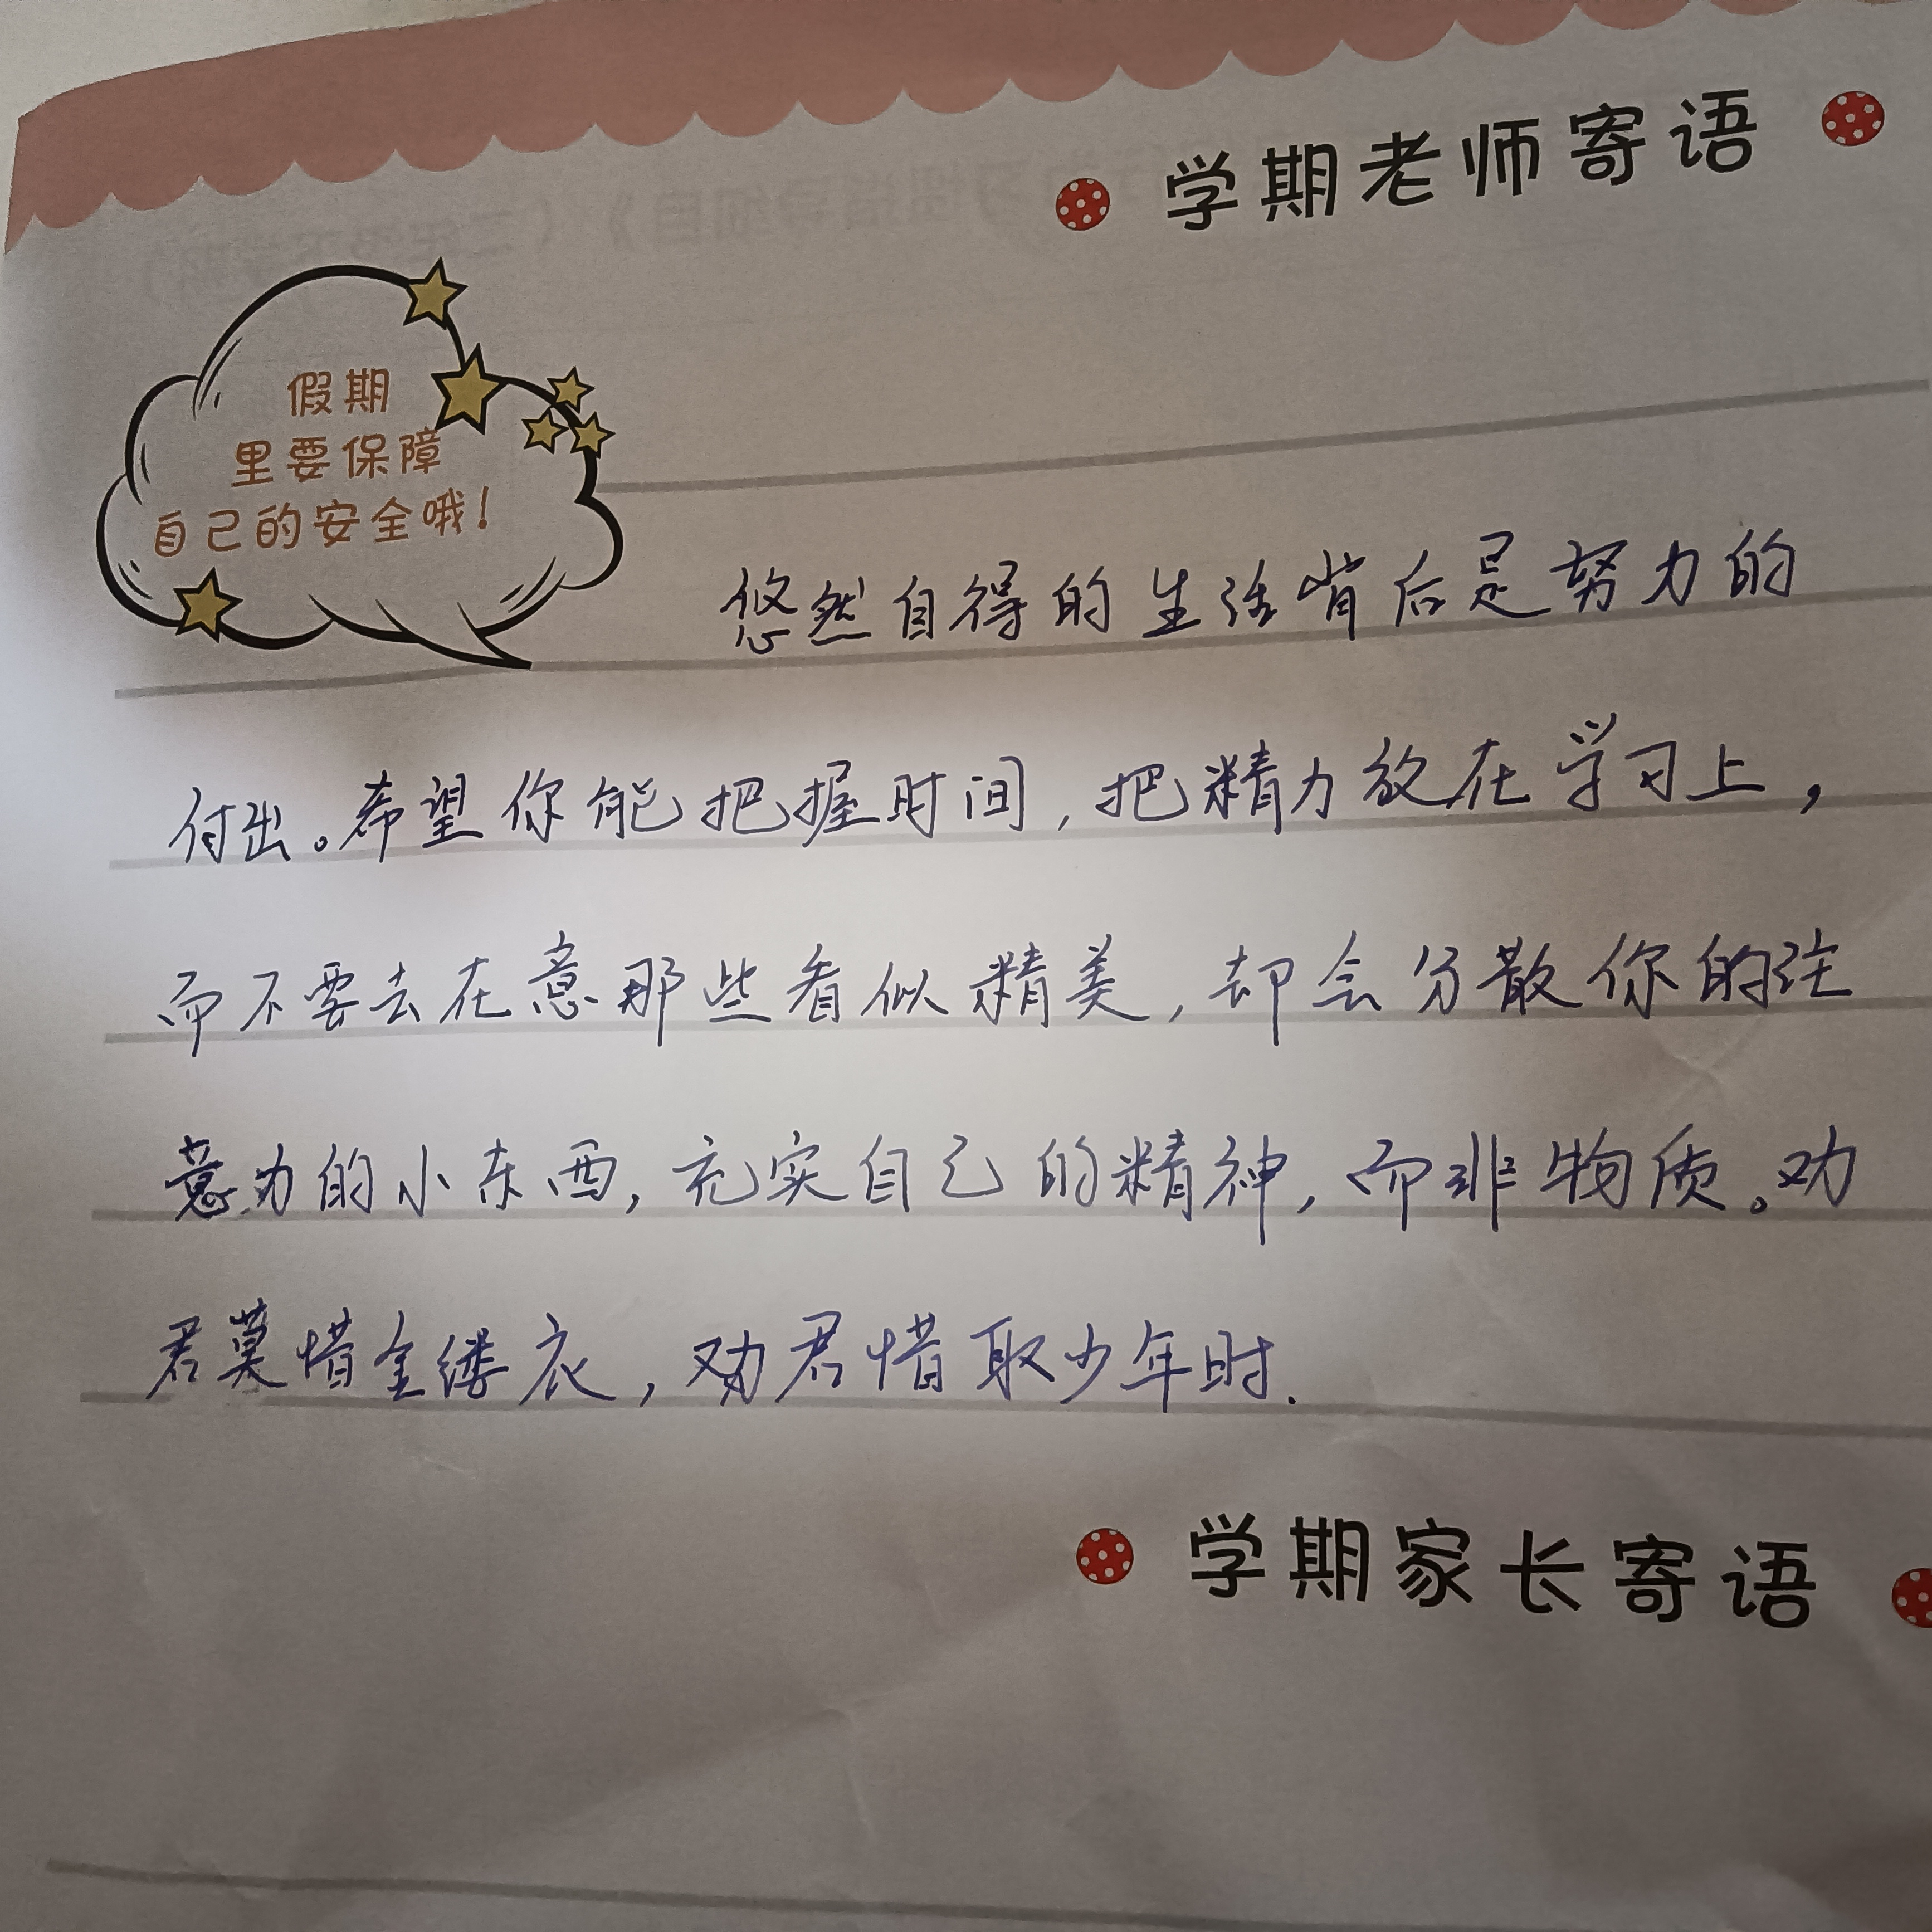 学期老师寄语
假期
里要保障
自己的安全哦!
悠然自得的生活背后是努力的
付出。希望你能把握时间,把精力放在学习上,
而不要去在意那些看似精美,却会分散你的注
意力的小东西,充实自己的精神,而非物质。劝
君莫惜金缕衣,劝君惜取少年时.
学期家长寄语